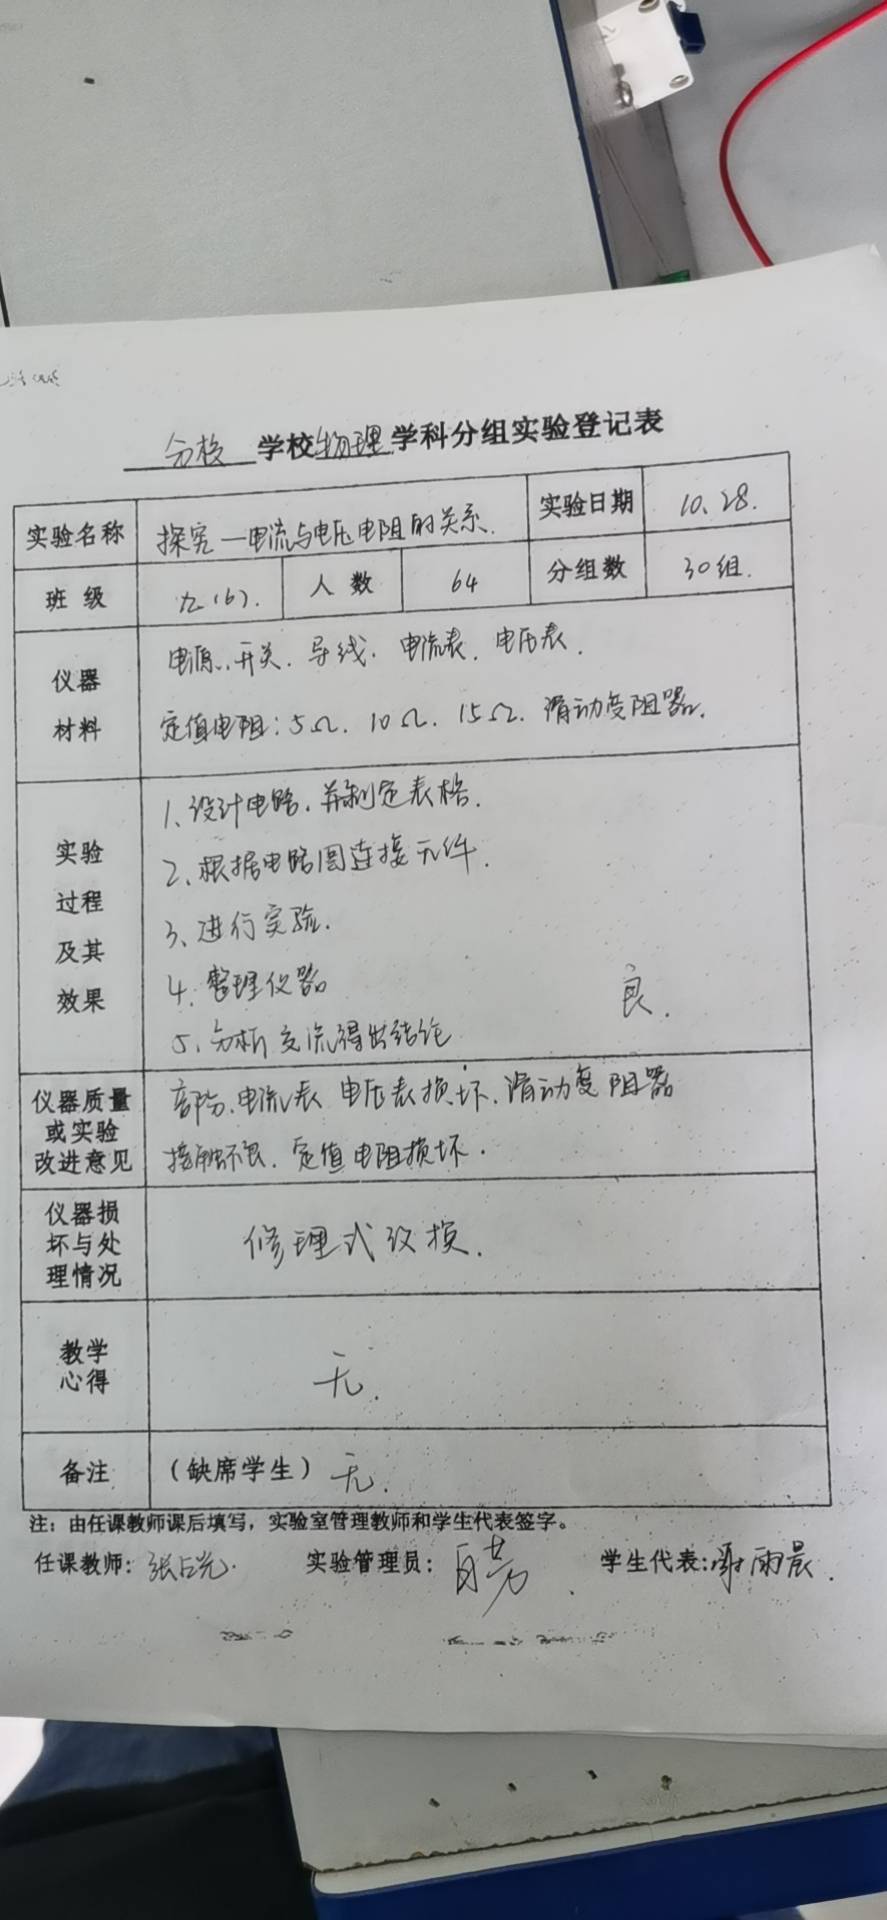 分校 学校物理学科分组实验登记表
实验名称 探究—电流与电压电阻的关系. 实验日期 10.28.
班 级 九(6). 人 数 64 分组数 30组.
仪器
材料
电源.开关.导线.电流表.电压表.
定值电阻:5Ω.10Ω.15Ω.滑动变阻器.
实验
过程
及其
效果
1、设计电路.并制定表格.
2、根据电路图连接元件.
3、进行实验.
4.整理仪器
良.
5.分析交流得出结论
仪器质量
或实验
改进意见
部份.电流表 电压表损坏.滑动变阻器
接触不良.定值电阻损坏.
仪器损
坏与处
理情况
修理 换.
教学
心得
无.
备注 (缺席学生) 无.
注:由任课教师课后填写,实验室管理教师和学生代表签字。
任课教师:张 实验管理员: 学生代表:雨晨.